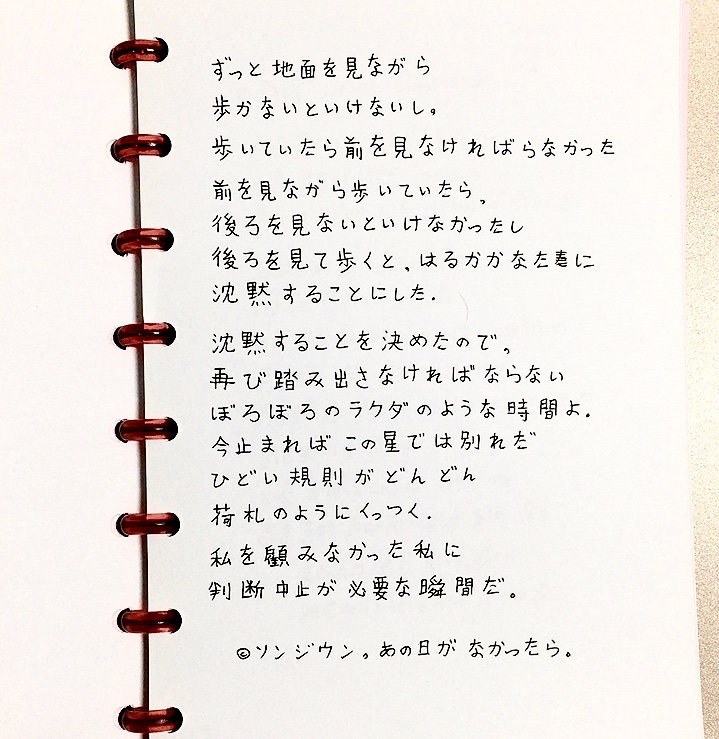 ずっと地面を見ながら
歩かないといけないし。
歩いていたら前を見なければらなかった
前を見ながら歩いていたら、
後ろを見ないといけなかったし
後ろを見て歩くと、はるかかなた遠に
沈黙することにした.
沈黙することを決めたので。
再び踏み出さなければならない
ぼろぼろのラクダのような時間よ.
今止まればこの星では別れだ
ひどい規則がどんどん
荷札のようにくっつく.
私を顧みなかった私に
判断中止が必要な瞬間だ。
©ソンジウン。あの日がなかったら。